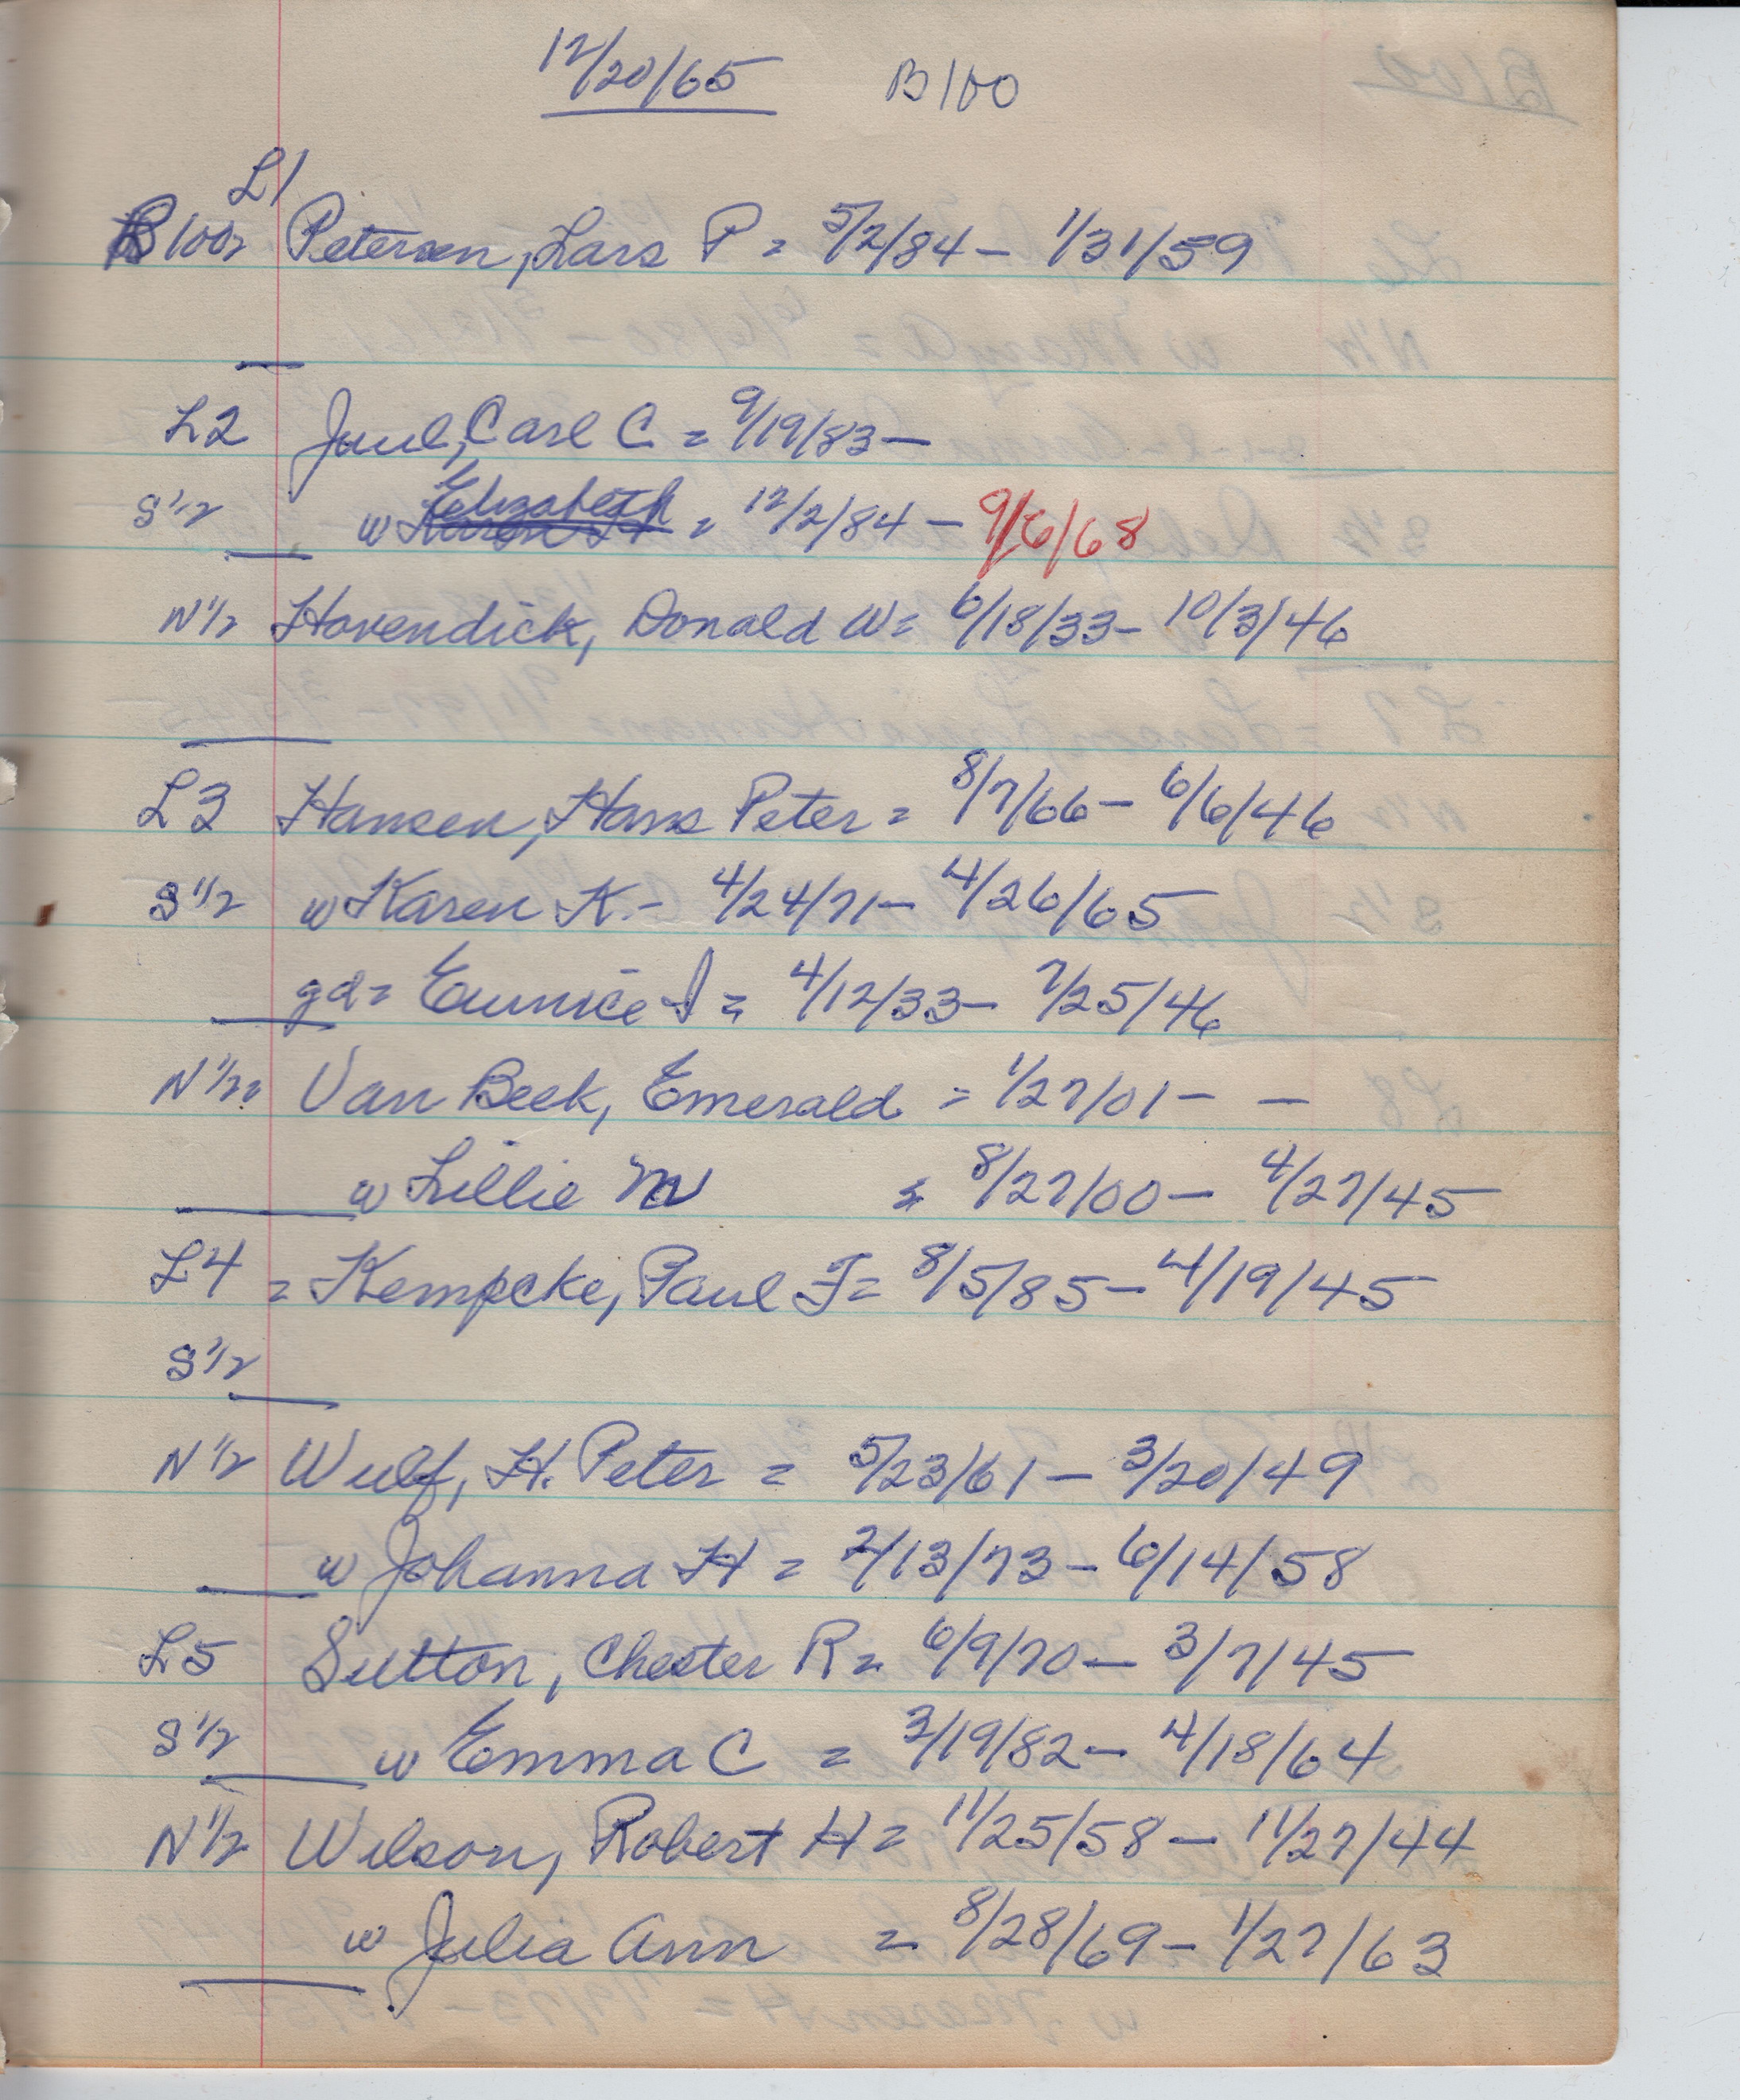 12/20/65 B100
L1
B100= Petersen, Lars P = 5/2/84 - 1/31/59
L2 Juul, Carl C. = 9/19/83 -
S 1/2 w Elizabeth = 12/2/84 - 9/6/68
N 1/2 Hovendick, Donald W = 6/18/33 - 10/3/46
L3 Hansen, Hans Peter = 8/7/66 - 6/6/46
S 1/2 w Karen K. - 4/24/71 - 4/26/65
gd = Eunice I = 4/12/33 - 7/25/46
N 1/2 = Van Beek, Emerald = 1/27/01 - -
w Lillie M = 8/27/00 - 4/27/45
L4 = Kempcke, Paul F = 8/5/85 - 4/19/45
S 1/2
N 1/2 Wulf, H. Peter = 5/23/61 - 3/20/49
w Johanna H = 2/13/73 - 6/14/58
L5 Sutton, Chester R = 6/9/70 - 3/7/45
S 1/2 w Emma C = /19/82 - 4/18/64
N 1/2 Wilson, Robert H = 11/25/58 - 11/27/44
w Julia Ann = 8/28/69 - 1/27/63